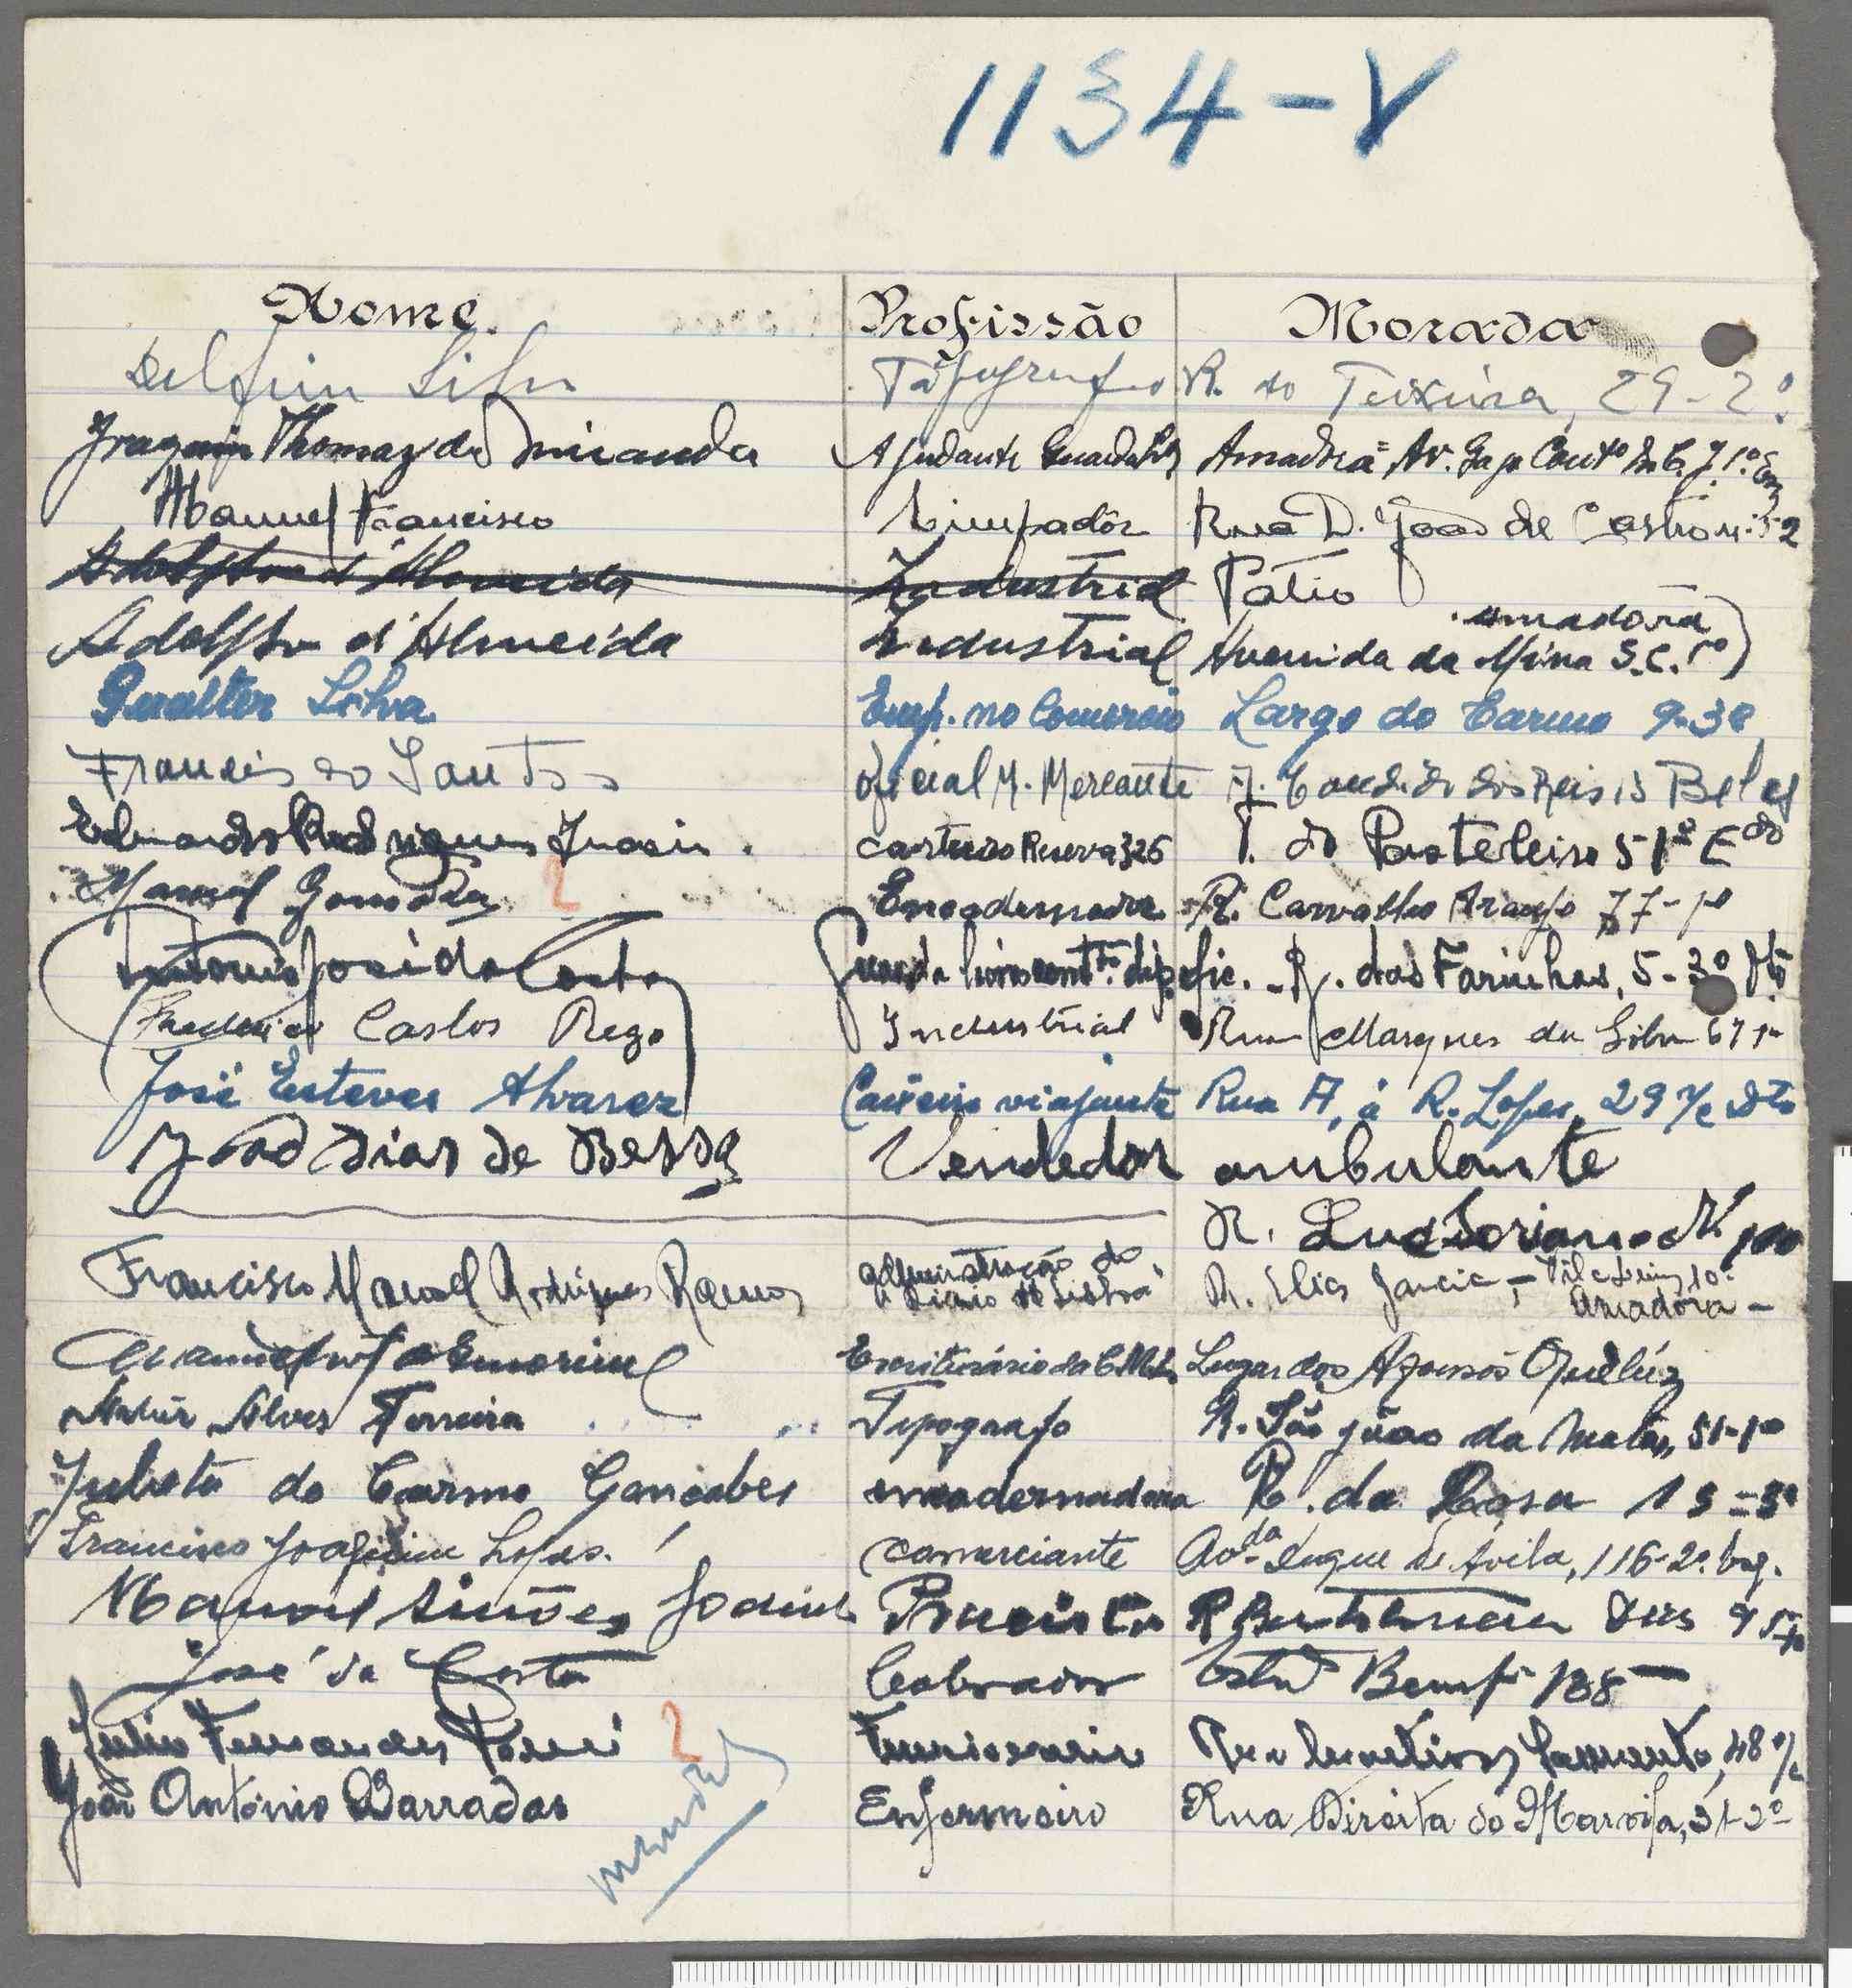 1134-V
Nome. Profissão Morada
Delfim Silva Tipografo R. do Teixeira, 29-2º
Joaquim Thomaz de Miranda Ajudante Guarda Amadora Av. Gago Coutº
Manuel Francisco Limpadôr Rua D. João de Castro nº 52
Adolfho d'Almeida Industrial Patio
Amadora
Adolfho d'Almeida Industrial Avenida da Mina S.C. 1º
Gualter Silva Emp. no Comercio Largo do Carmo 9-3º
Francisco Santos Oficial M. Mercante Candido dos Reis
Eduardo Rodrigues carteiro Reserva 326 T. do Pasteleiro 51 2º Edo
Manuel Gonçalves 2 Encadernador R. Carvalho Araujo 77-1º
Antonio José da Costa Guarda R. das Farinhas, 5-3º Dtº
Frederico Carlos Rego Industrial Rua Marques da Silva 67 1º
José Esteves Alvarez Caixeiro viajante Rua A, á R. Lopes, 29 r/c Dto
João Dias de Bessa Vendedor ambulante
R. Luz Soriano Nº 100
Francisco Manoel Rodrigues Ramos administração do R. Elias Garcia
"Diario de Lisboa" Amadora -
Amorim Escriturário da C.M.L. Lugar dos Afonsos Queluz
Artur Alves Ferreira Tipografo R. São João da Mata, 51-1º
Julieta do Carmo Gonçalves encadernadora R. da Rosa 15=3º
Francisco Joaquim Lopes. comerciante Avda Duque de Avila, 116-2º. Esq.
Manuel Simões Godinho R Bartolomeu Dias
José da Costa Cobrador Estrª Benfª 188
Julio Fernandes 2 Funcionario Sarmento, 48 r/c
João António Barradas Enfermeiro Rua Direita de Marvila, 31-2º
mendes